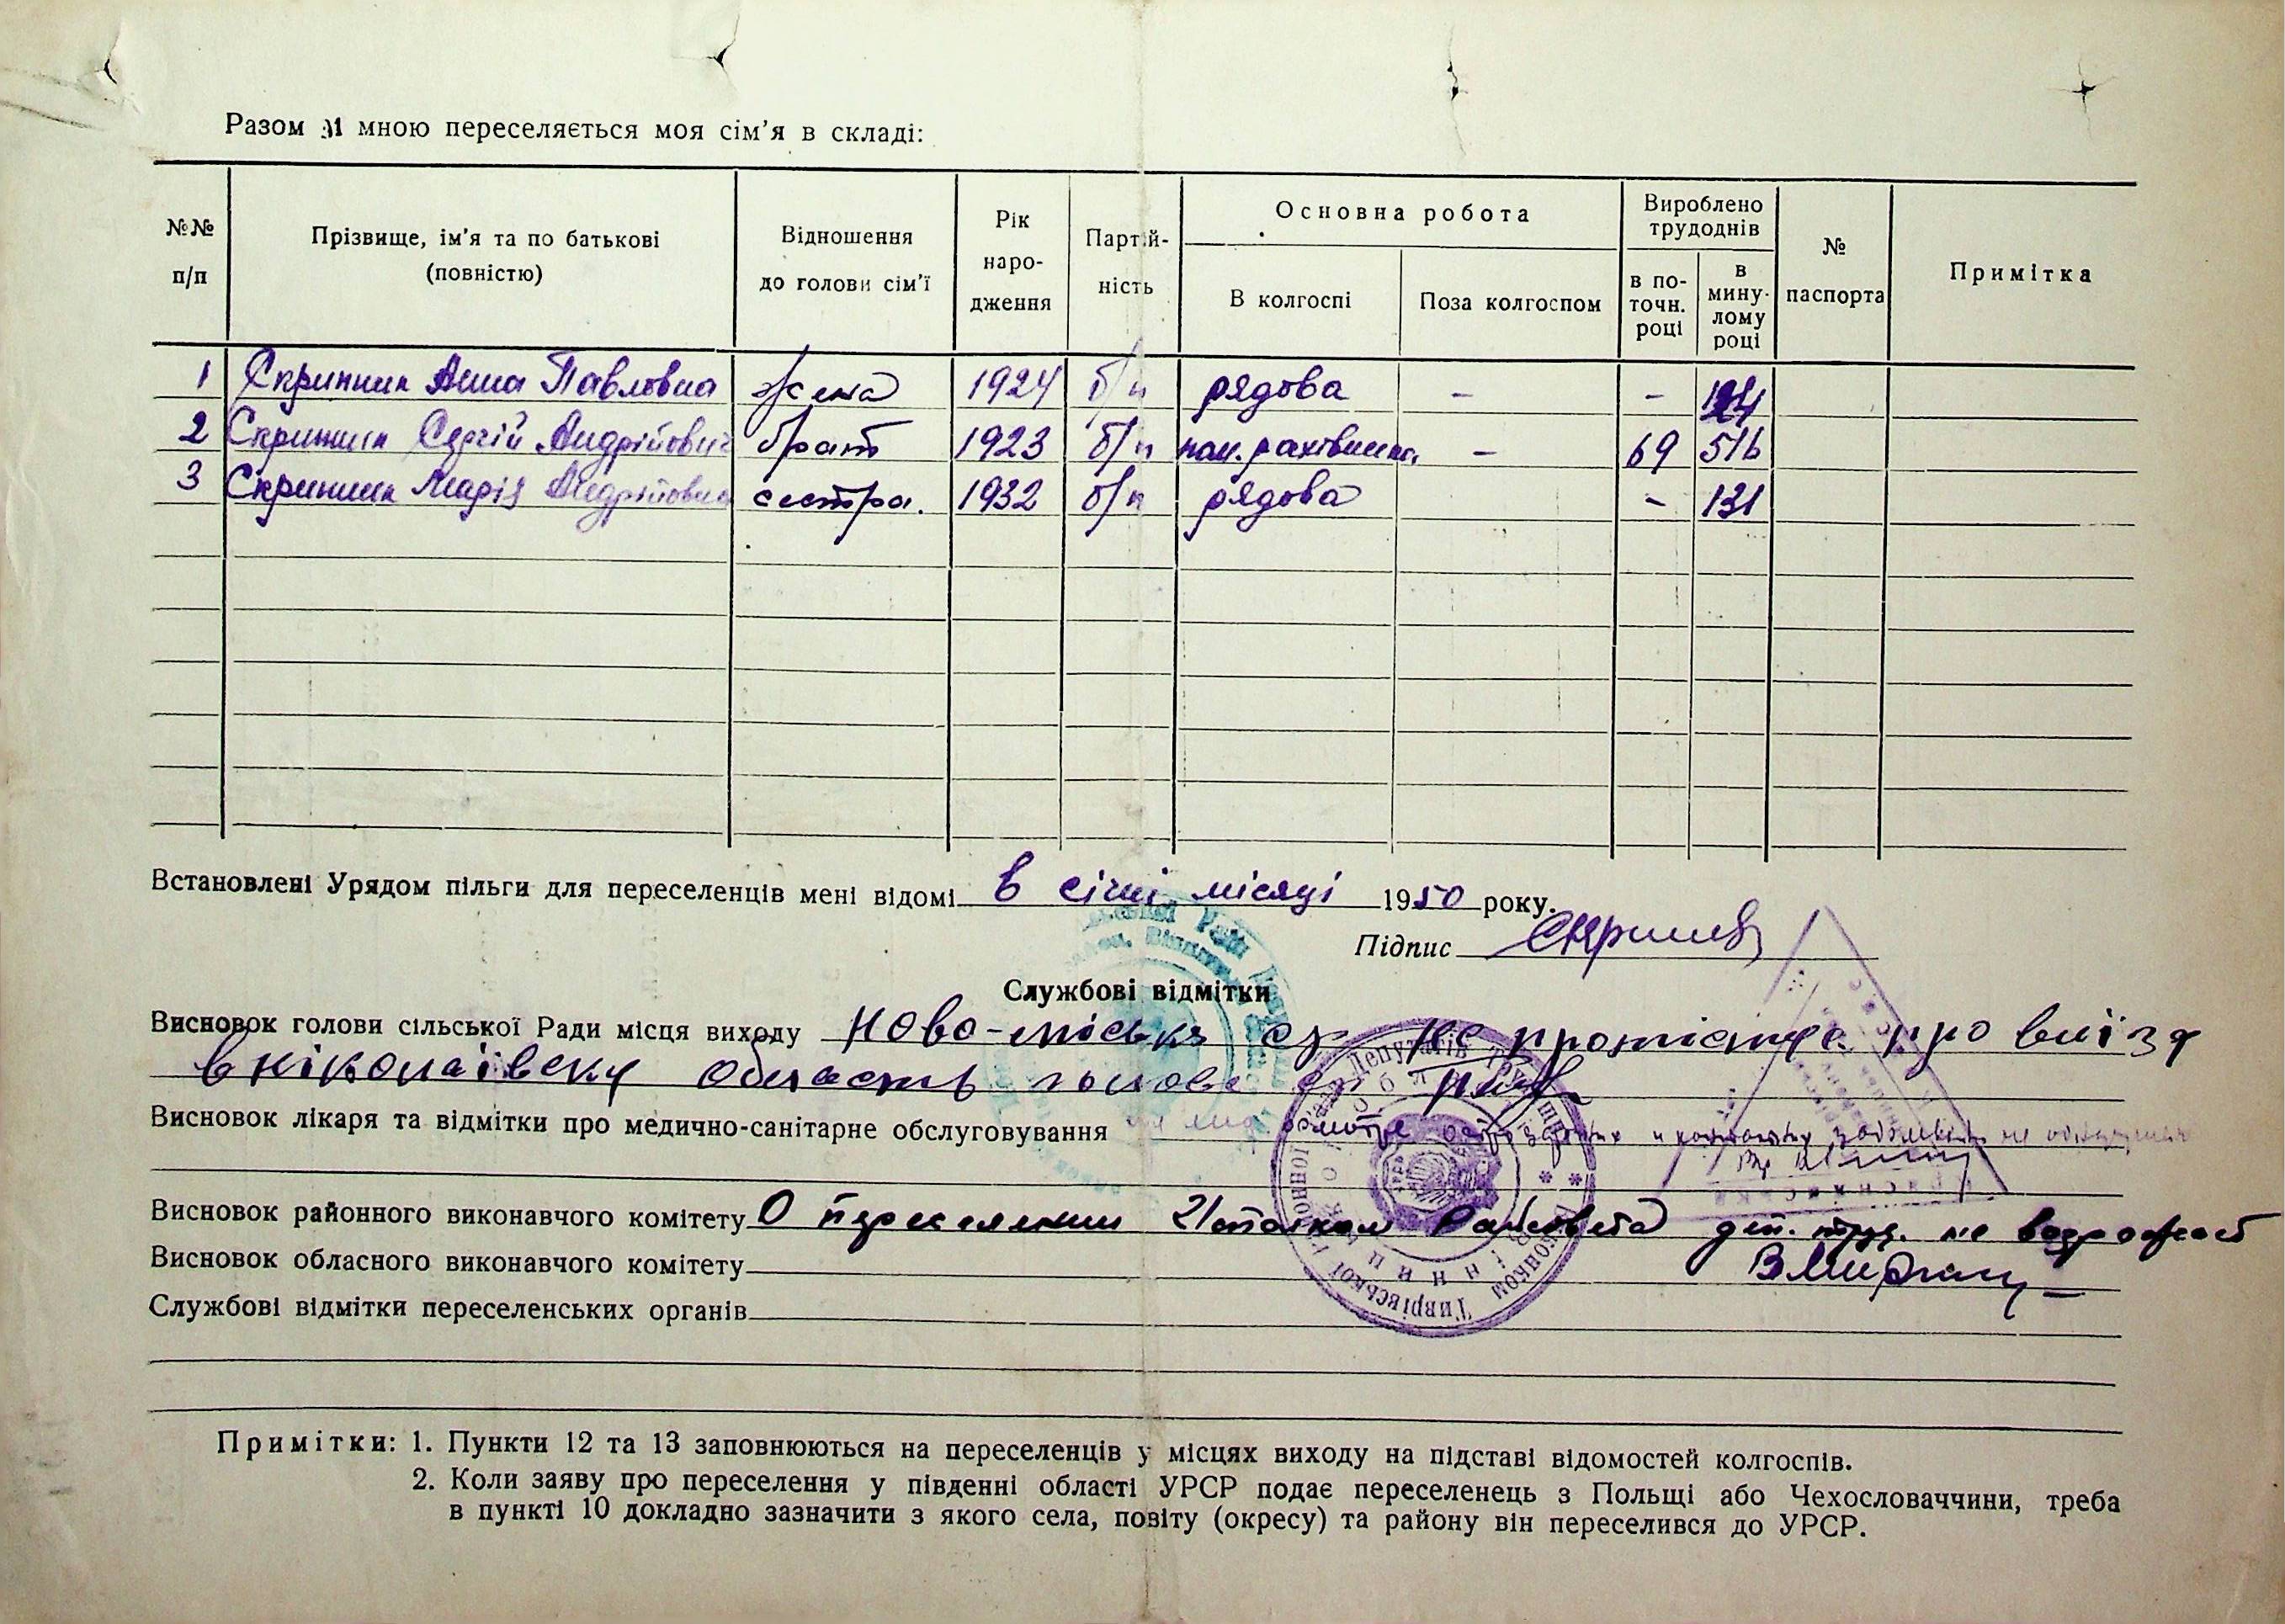 Разом зі мною переселяється моя сім'я в складі:
№№ п/п
Прізвище, ім'я та по батькові (повністю)
Відношення до голови сім'ї
Рік народження
Партійність
Основна робота
В колгоспі
Поза колгоспом
Вироблено трудоднів
в поточн. році
в минулому році
№ паспорта
Примітка
1 Скрипник Анна Павловна жена 1924 б/п рядова - -
2 Скрипник Сергій Андрійович брат 1923 б/п пом. рахівника - 69 516
3 Скрипник Марія Андрійовна сестра. 1932 б/п рядова - 131
Встановлені Урядом пільги для переселенців мені відомі в січні місяці 1950 року.
Підпис
Службові відмітки
Висновок голови сільської Ради місця виходу Ново-міська ср не протистує про виїзд
в ніколаївску область голова ср
Висновок лікаря та відмітки про медично-санітарне обслуговування
Висновок районного виконавчого комітету О переселении Исполком Райсовета деп. труд. не возражает
Висновок обласного виконавчого комітету
Службові відмітки переселенських органів
Примітки: 1. Пункти 12 та 13 заповнюються на переселенців у місцях виходу на підставі відомостей колгоспів.
2. Коли заяву про переселення у південні області УРСР подає переселенець з Польщі або Чехословаччини, треба
в пункті 10 докладно зазначити з якого села, повіту (окресу) та району він переселився до УРСР.